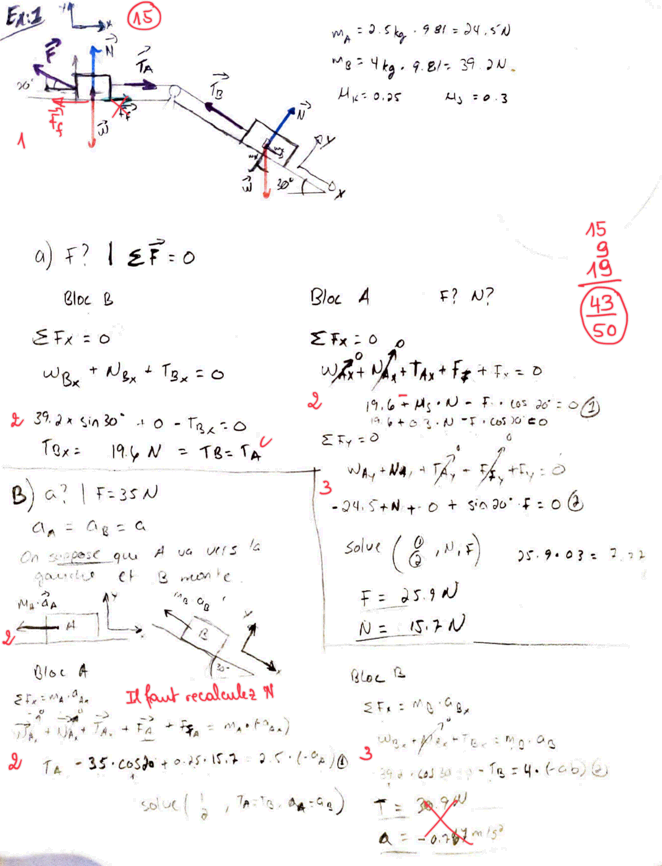 Ex:1
Y
X
15
F
N
TA
TB
N
20°
Ff
Ff
W
W
30°
Y
X
1
mA = 2.5kg . 9.81 = 24.5N
mB = 4kg . 9.81 = 39.2N.
μk = 0.25 μs = 0.3
a) F? | ΣF = 0
15
9
19
43
50
Bloc B
ΣFx = 0
WBx + NBx + TBx = 0
2 39.2 x sin30° + 0 - TBx = 0
TBx = 19.6 N = TB = TA
Bloc A F? N?
ΣFx = 0
WAx + NAx + TAx + Ff + Fx = 0
2 19.6 + μs . N - F . cos 20° = 0 (1)
19.6 + 0.3 . N - F . cos 20° = 0
ΣFy = 0
WAy + NAy + TAy + Ffy + Fy = 0
3
-24.5 + N + 0 + sin 20° . F = 0 (2)
solve ( 1 2 , N, F)
F = 25.9 N
N = 15.7 N
B) a? | F = 35 N
aA = aB = a
On suppose que A va vers la
gauche et B monte.
mA . aA
A
Y
X
mB aB
B
30°
2
Bloc A
ΣFx = mA . aAx
Il faut recalculez N
WAx + NAx + TAx + FA + FfA = mA . (-aAx)
2 TA - 35 . cos20 + 0.25 . 15.7 = 2.5 . (-aA) (1)
solve ( 1 2 , TA = TB, aA = aB)
Bloc B
ΣFx = mB . aBx
WBx + NBx + TBx = mB . aB
3
39.2 . cos 30 + 0 - TB = 4 . (-ab) (2)
T = 30.9 N
a = -0.767 m/s²